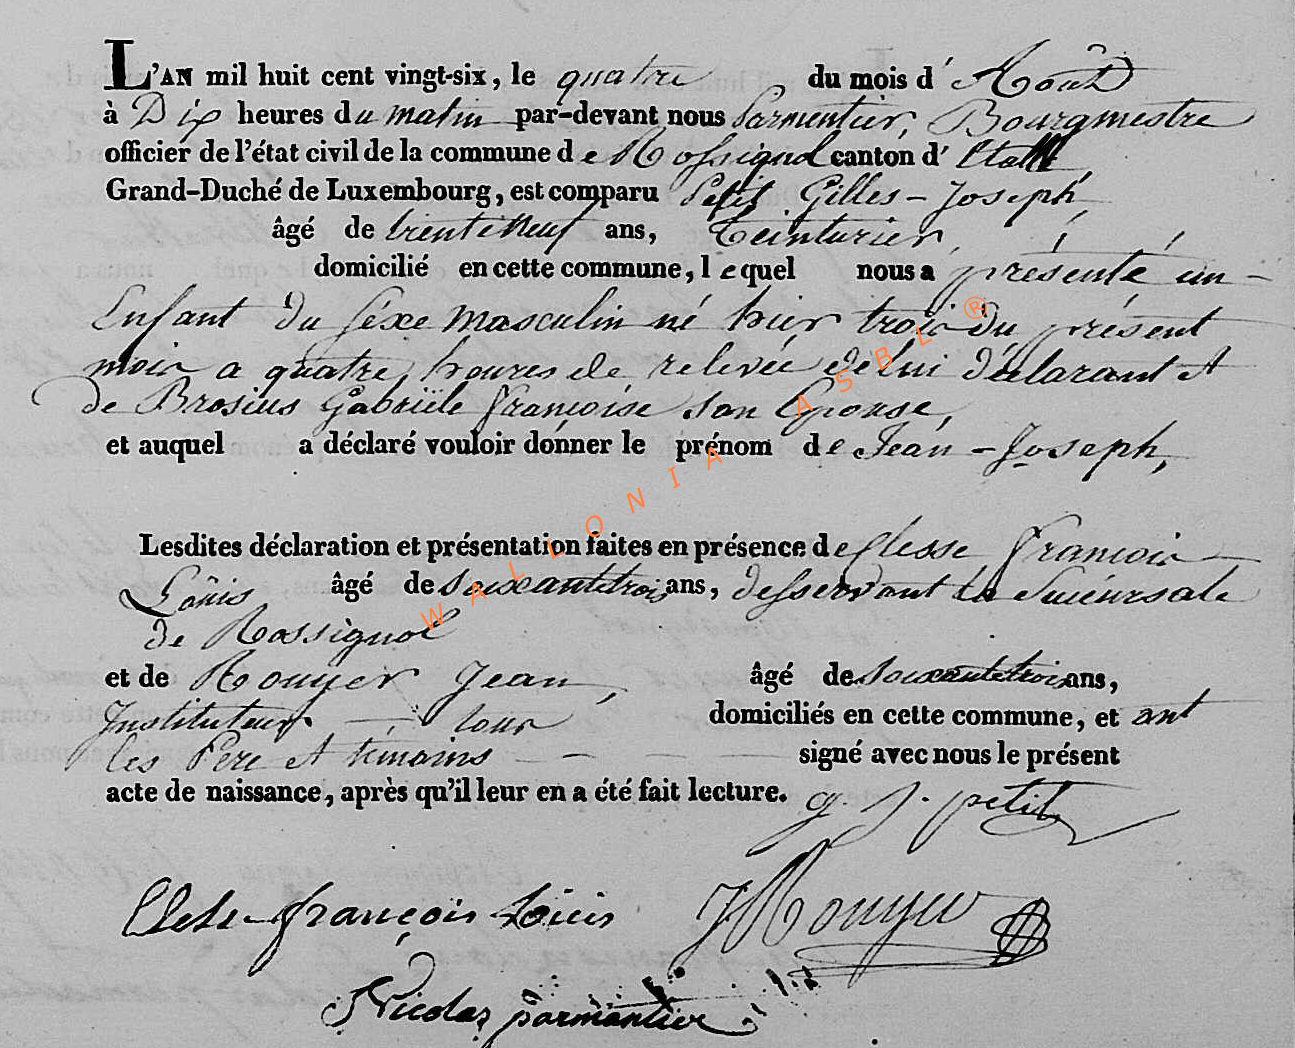 L'AN mil huit cent vingt-six, le quatre du mois d'Août
à Dix heures du matin par-devant nous Parmentier, Bourgmestre
officier de l'état civil de la commune de Rossignol canton d'Etalle
Grand-Duché de Luxembourg, est comparu Petit Gilles-Joseph,
âgé de trente neuf ans, Teinturier,
domicilié en cette commune, lequel nous a présenté un
Enfant du séxe masculin né hier trois du présent
mois a quatre heures de relevée de lui déclarant et
de Brosius Gabriële françoise son Epouse,
et auquel a déclaré vouloir donner le prénom de Jean-Joseph,
Lesdites déclaration et présentation faites en présence de Clesse François
Loüis âgé de soixantetrois ans, desservant la Succursale
de Rossignol
et de Rouyer Jean, âgé de soixantetrois ans,
Instituteur tous domiciliés en cette commune, et ont
les Pere et témoins signé avec nous le présent
acte de naissance, après qu'il leur en a été fait lecture.
g. j. petit
Clesse françois Loüis JRouyer
Nicolas parmentier
WALLONIA ASBL ®